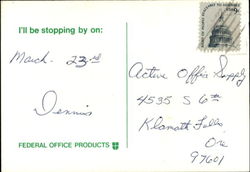 I'll be stopping by on:
March 23rd
Dennis
FEDERAL OFFICE PRODUCTS
Active Office Supply
4535 S 6th
Klamath Falls
Ore
97601